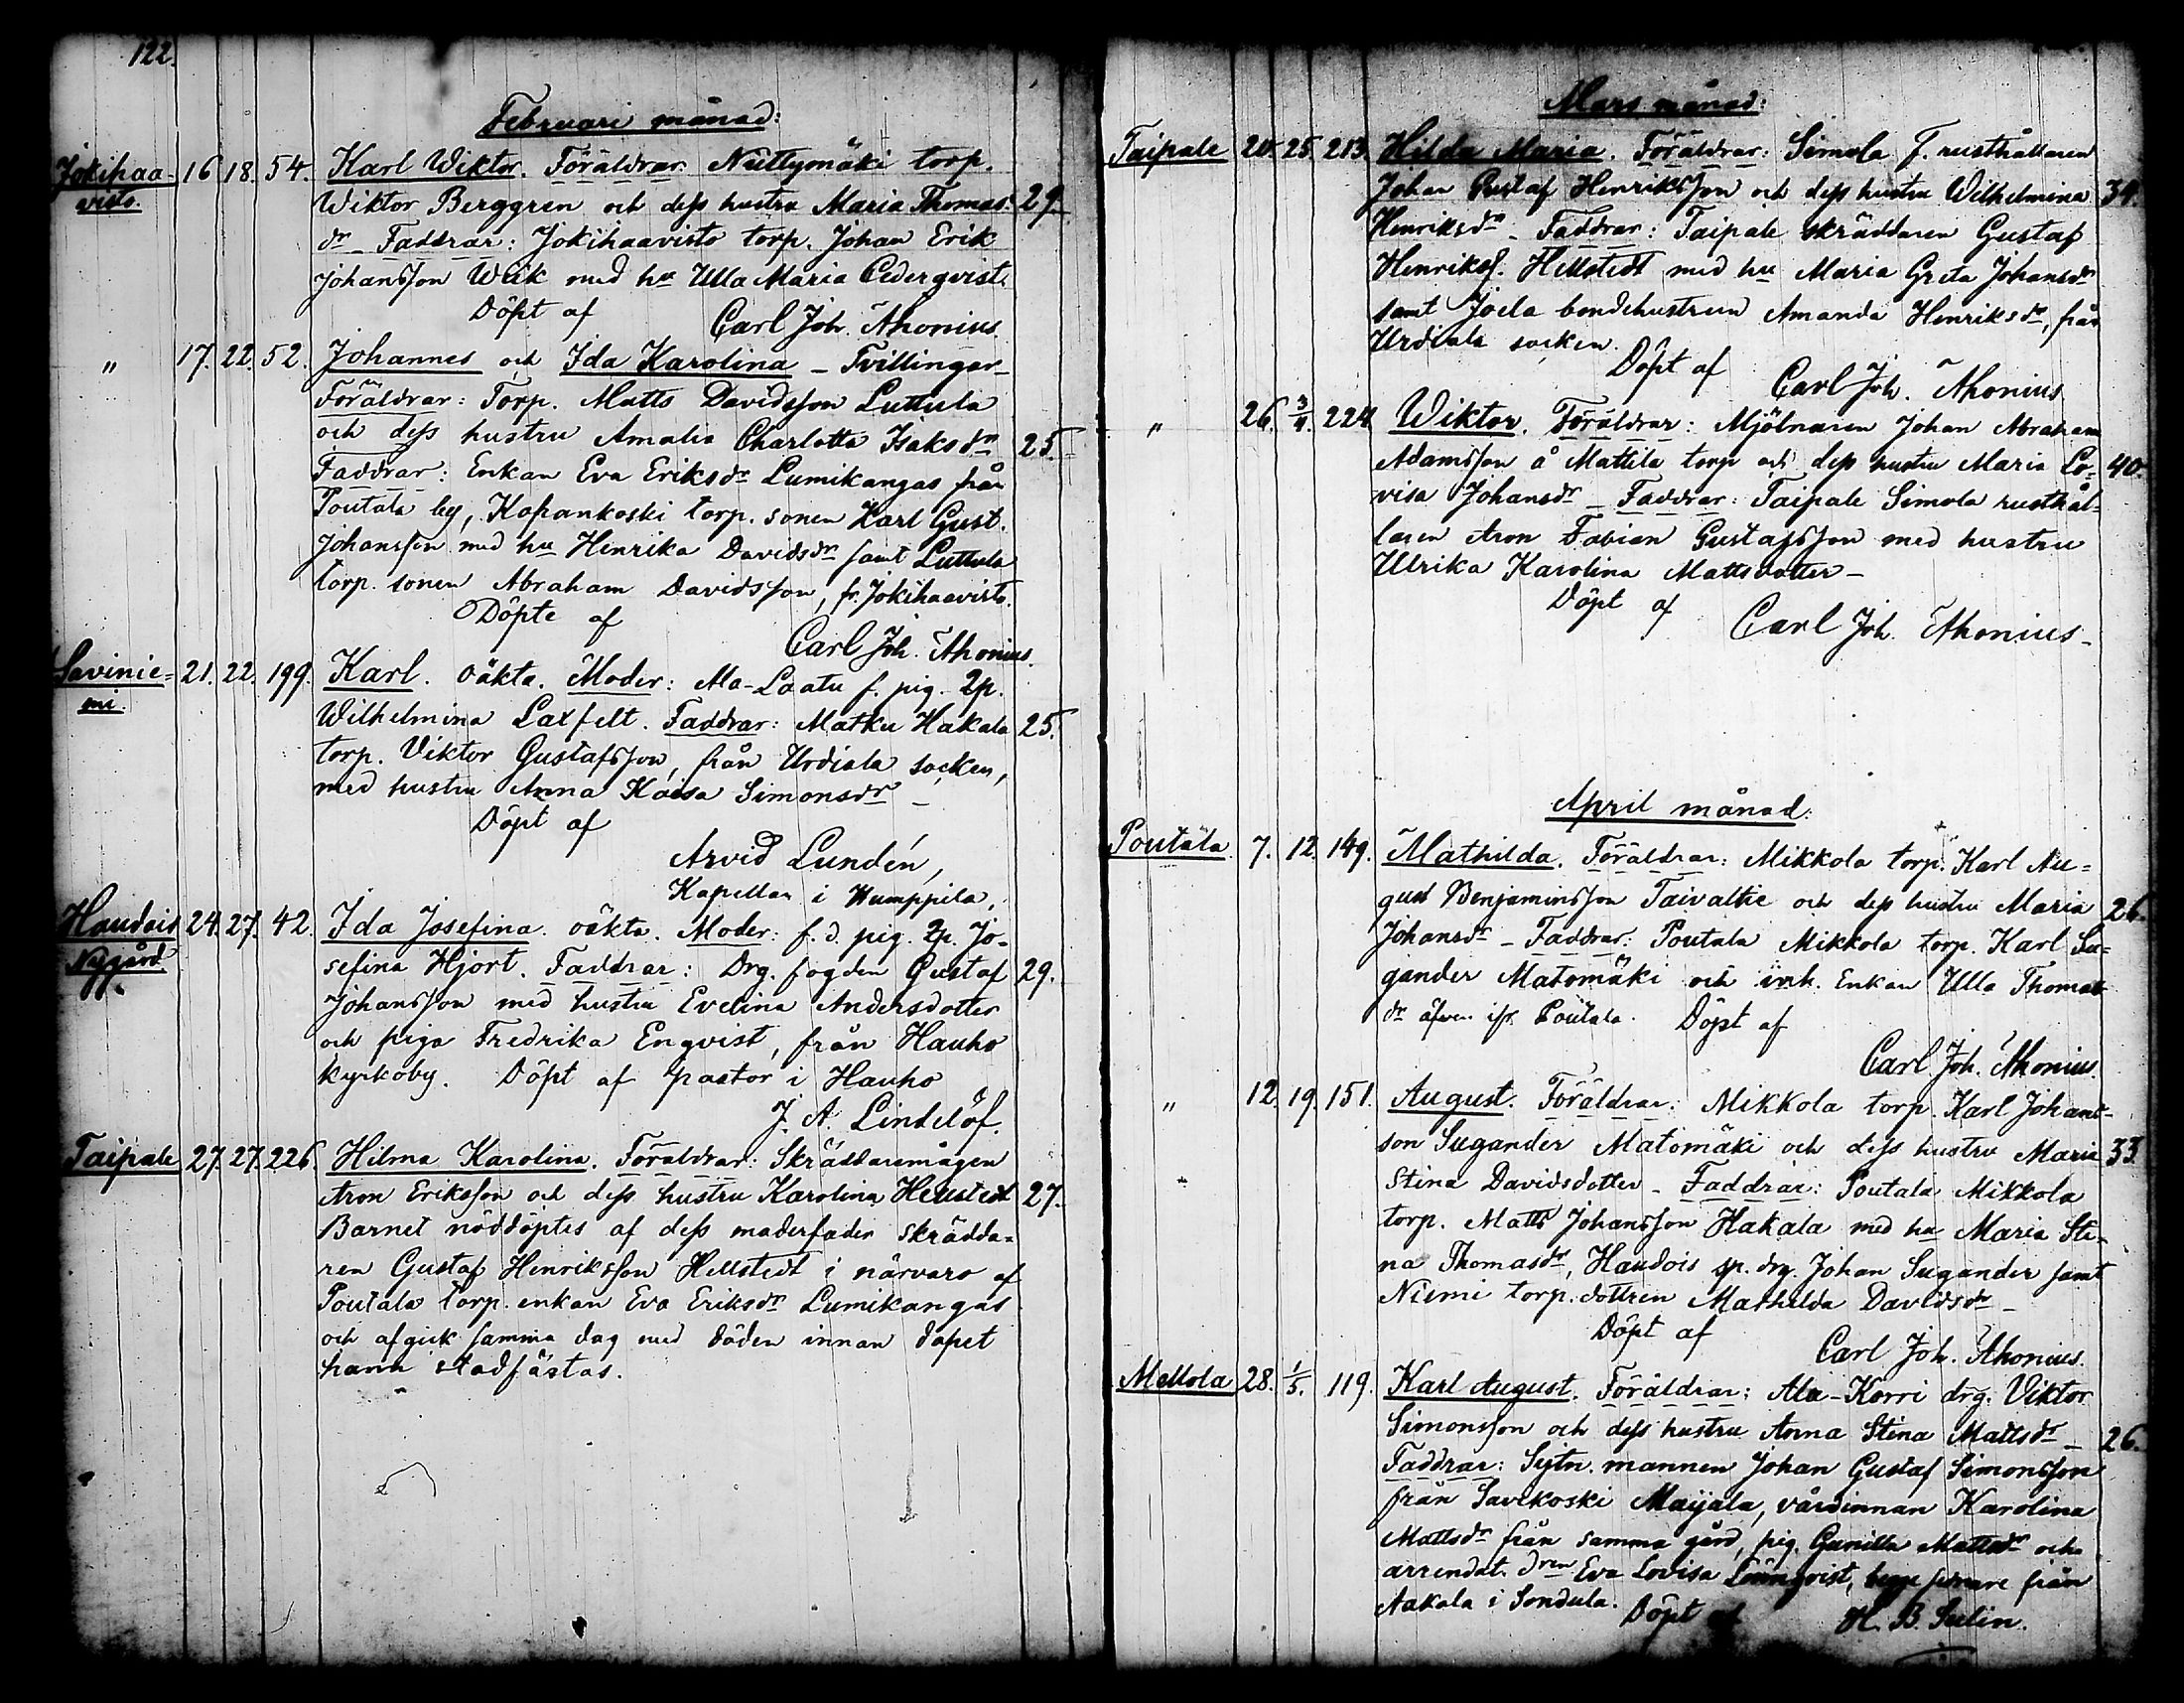 122.
Februari månad:
Jokihaa- 16 18. 54. Karl Wiktor. Föräldrar Nuttymäki torp.
visto. Wiktor Berggren och dess hustru Maria Thomas- 29.
dr – Faddrar: Jokihaavisto torp. Johan Erik
Johansson Wiik med hu Ulla Maria Cederqvist.
Döpt af Carl Joh. Ahonius.
" 17. 22. 52. Johannes och Ida Karolina – Tvillingar –
Föräldrar: Torp. Matts Davidsson Luttula
och dess hustru Amalia Charlotta Isaksdr 25.
Faddrar: Enkan Eva Eriksdr Lumikangas från
Poutala by, Kopankoski torp. sonen Karl Gust.
Johansson med hu Henrika Davidsdr samt Luttula
torp. sonen Abraham Davidsson, fr. Jokihaavisto.
Döpte af
Carl Joh. Ahonius.
Savinie- 21. 22. 199. Karl. oäkta. Moder: Ala-Laatu f. pig. 2p.
mi. Wilhelmina Laxfelt. Faddrar: Matku Hakala 25.
torp. Viktor Gustafsson, från Urdiala socken,
med hustru Anna Kaisa Simonsdr –
Döpt af
Arvid Lundén,
Kapellan i Humppila.
Haudois 24. 27. 42. Ida Josefina. oäkta. Moder: f. d. pig. 2p. Jo-
Nygård. sefina Hjort. Faddrar: Drg. fogden Gustaf 29.
Johansson med hustru Evelina Andersdotter
och piga Fredrika Enqvist, från Hauho
kyrkoby. Döpt af pastor i Hauho
J. A. Lindelöf.
Taipale 27. 27. 226. Hilma Karolina. Föräldrar: Skräddaremågen
Aron Eriksson och dess hustru Karolina Hellstedt 27.
Barnet nöddöptes af dess moderfader skrädda-
ren Gustaf Henriksson Hellstedt i närvaro af
Poutala torp. enkan Eva Eriksdr Lumikangas
och afgick samma dag med döden innan dopet
hann stadfästas.
Mars månad:
Taipale 20. 25. 213. Hilda Maria. Föräldrar: Simola f. rusthållaren
Johan Gustaf Henriksson och dess hustru Wilhelmina 34.
Henriksdr – Faddrar: Taipale skräddaren Gustaf
Henrikss. Hellstedt med hu Maria Greta Johansdr
samt Joela bondehustrun Amanda Henriksdr, från
Urdiala socken.
Döpt af Carl Joh. Ahonius
" 26. 3/4. 224 Wiktor. Föräldrar: Mjölnaren Johan Abraham
Adamsson å Mattila torp och dess hustru Maria Lo- 40.
visa Johansdr – Faddrar: Taipale Simola rusthål-
laren Aron Fabian Gustafsson med hustru
Ulrika Karolina Mattsdotter –
Döpt af
Carl Joh. Ahonius –
April månad:
Poutala 7. 12. 149. Mathilda. Föräldrar: Mikkola torp. Karl Au-
gust Benjaminsson Taivaltie och dess hustru Maria 26.
Johansdr – Faddrar: Poutala Mikkola torp. Karl Su-
gander Matomäki och inh. Enkan Ulla Thomas-
dr äfven ifr. Poutala. Döpt af
Carl Joh. Ahonius.
" 12. 19. 151. August. Föräldrar: Mikkola torp. Karl Johans-
son Sugander Matomäki och dess hustru Maria 33.
Stina Davidsdotter – Faddrar: Poutala Mikkola
torp. Matts Johansson Hakala med hu Maria Sti-
na Thomasdr, Haudois sp. drg. Johan Sugander samt
Niemi torp. dottren Mathilda Davidsdr –
Döpt af
Carl Joh. Ahonius.
Mellola 28. 1/5. 119. Karl August. Föräldrar: Ala-Korri drg. Viktor
Simonsson och dess hustru Anna Stina Mattsdr – 26.
Faddrar: Sytn. mannen Johan Gustaf Simonsson
från Savikoski Maijala, värdinnan Karolina
Mattsdr från samma gård, pig. Gunilla Mattsdr och
arrendat. dren Eva Lovisa Lönnqvist, begge senare från
Aakala i Sondula.
Döpt af H. B. Sulin.